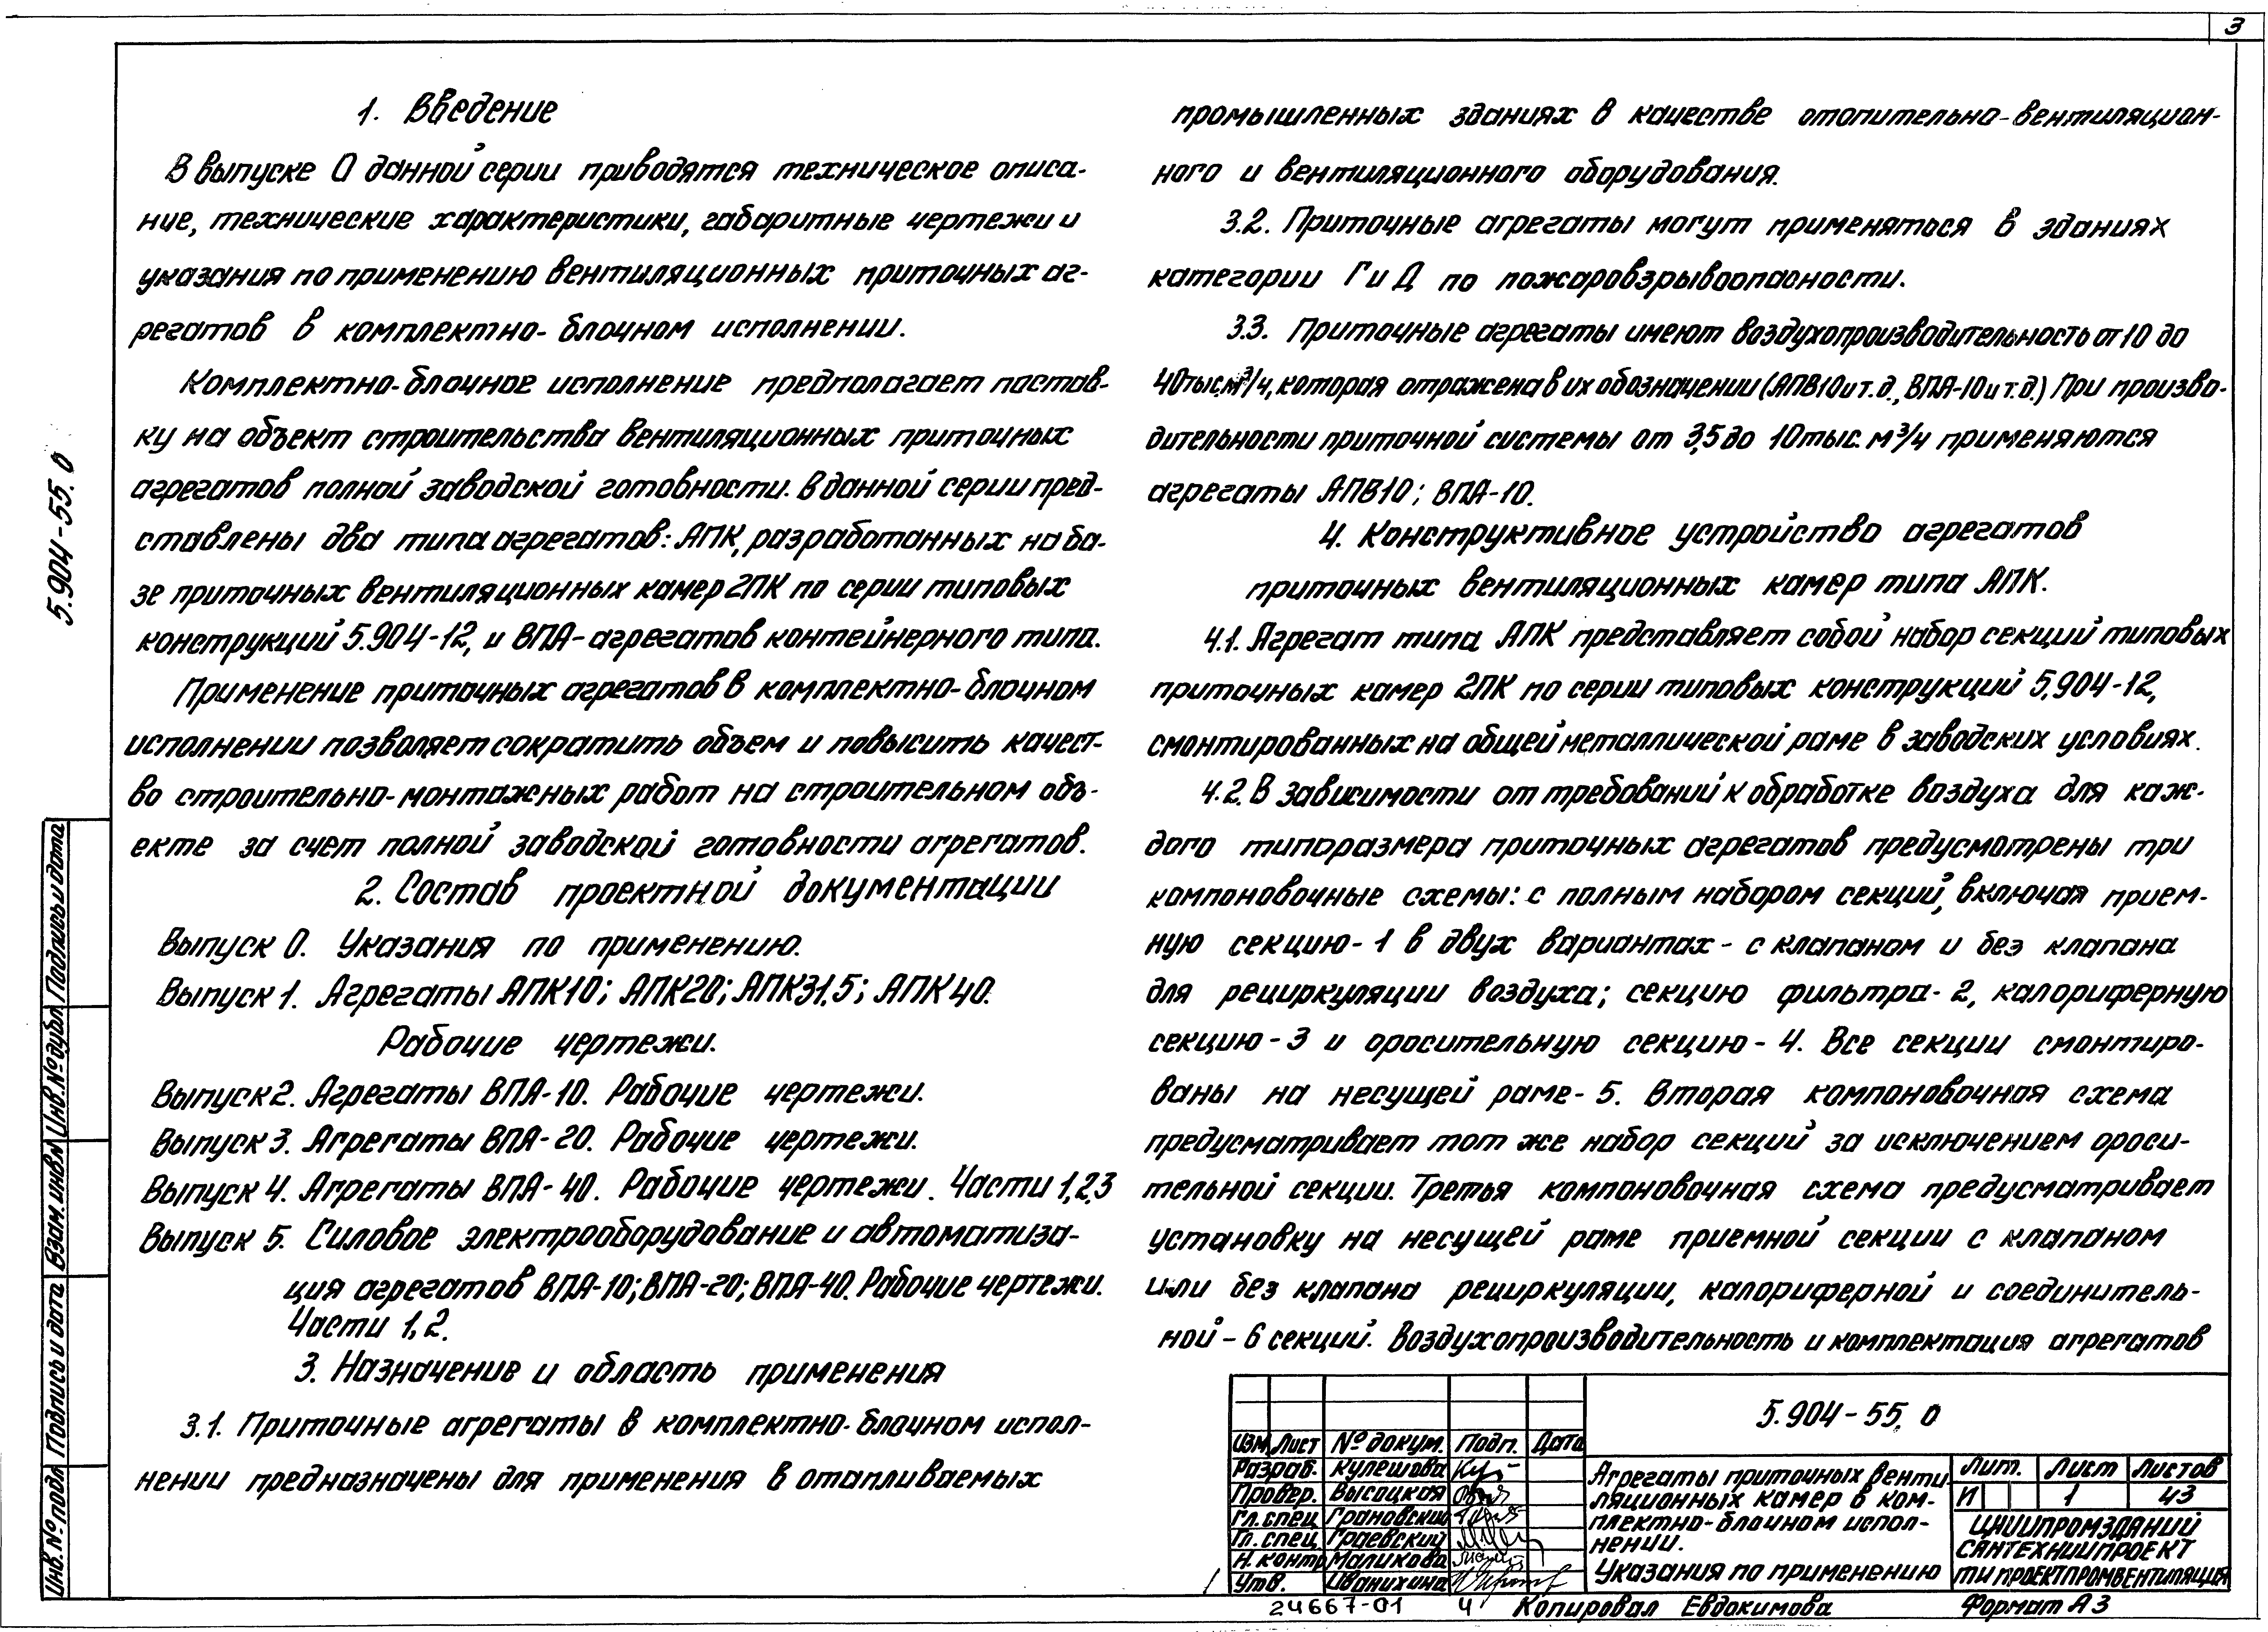 3
1. Введение
В выпуске 0 данной серии приводятся техническое описа-
ние, технические характеристики, габаритные чертежи и
указания по применению вентиляционных приточных аг-
регатов в комплектно-блочном исполнении.
Комплектно-блочное исполнение предполагает постав-
ку на объект строительства вентиляционных приточных
агрегатов полной заводской готовности. В данной серии пред-
ставлены два типа агрегатов: АПК, разработанных на ба-
зе приточных вентиляционных камер 2ПК по серии типовых
конструкций 5.904-12, и ВПА- агрегатов контейнерного типа.
Применение приточных агрегатов в комплектно-блочном
исполнении позволяет сократить объем и повысить качест-
во строительно-монтажных работ на строительном объ-
екте за счет полной заводской готовности агрегатов.
2. Состав проектной документации
Выпуск 0. Указания по применению.
Выпуск 1. Агрегаты АПК10; АПК20; АПК31,5; АПК 40.
Рабочие чертежи.
Выпуск 2. Агрегаты ВПА-10. Рабочие чертежи.
Выпуск 3. Агрегаты ВПА-20. Рабочие чертежи.
Выпуск 4. Агрегаты ВПА-40. Рабочие чертежи. Части 1,2,3
Выпуск 5. Силовое электрооборудование и автоматиза-
ция агрегатов ВПА-10; ВПА-20; ВПА-40. Рабочие чертежи.
Части 1,2.
3. Назначение и область применения
3.1. Приточные агрегаты в комплектно-блочном испол-
нении предназначены для применения в отапливаемых
промышленных зданиях в качестве отопительно-вентиляцион-
ного и вентиляционного оборудования.
3.2. Приточные агрегаты могут применяться в зданиях
категории Г и Д по пожаровзрывоопасности.
3.3. Приточные агрегаты имеют воздухопроизводительность от 10 до
40 тыс. м³/ч, которая отражена в их обозначении (АПВ10 и т.д., ВПА-10 и т.д.) При произво-
дительности приточной системы от 3,5 до 10 тыс. м³/ч применяются
агрегаты АПВ10; ВПА-10.
4. Конструктивное устройство агрегатов
приточных вентиляционных камер типа АПК.
4.1. Агрегат типа АПК представляет собой набор секций типовых
приточных камер 2ПК по серии типовых конструкций 5.904-12,
смонтированных на общей металлической раме в заводских условиях.
4.2. В зависимости от требований к обработке воздуха для каж-
дого типоразмера приточных агрегатов предусмотрены три
компоновочные схемы: с полным набором секций, включая прием-
ную секцию-1 в двух вариантах- с клапаном и без клапана
для рециркуляции воздуха; секцию фильтра-2, калориферную
секцию-3 и оросительную секцию-4. Все секции смонтиро-
ваны на несущей раме-5. Вторая компоновочная схема
предусматривает тот же набор секций за исключением ороси-
тельной секции. Третья компоновочная схема предусматривает
установку на несущей раме приемной секции с клапаном
или без клапана рециркуляции, калориферной и соединитель-
ной-6 секций. Воздухопроизводительность и комплектация агрегатов
5.904-55.0
Инв.№подл Подпись и дата Взам.инв№ Инв.№дубл Подпись и дата
5.904-55.0
Изм Лист №докум. Подп. Дата
Разраб. Кулешова
Провер. Высоцкая
Гл.спец Грановский
Гл.спец. Граевский
Н.контр Маликова
Утв. Иванихина
Агрегаты приточных венти
ляционных камер в ком-
плектно-блочном испол-
нении.
Указания по применению
Лит. Лист Листов
И 1 43
ЦНИИПРОМЗДАНИЙ
САНТЕХНИИПРОЕКТ
ГПИ ПРОЕКТПРОМВЕНТИЛЯЦИЯ
24667-01 4 Копировал Евдокимова Формат А3